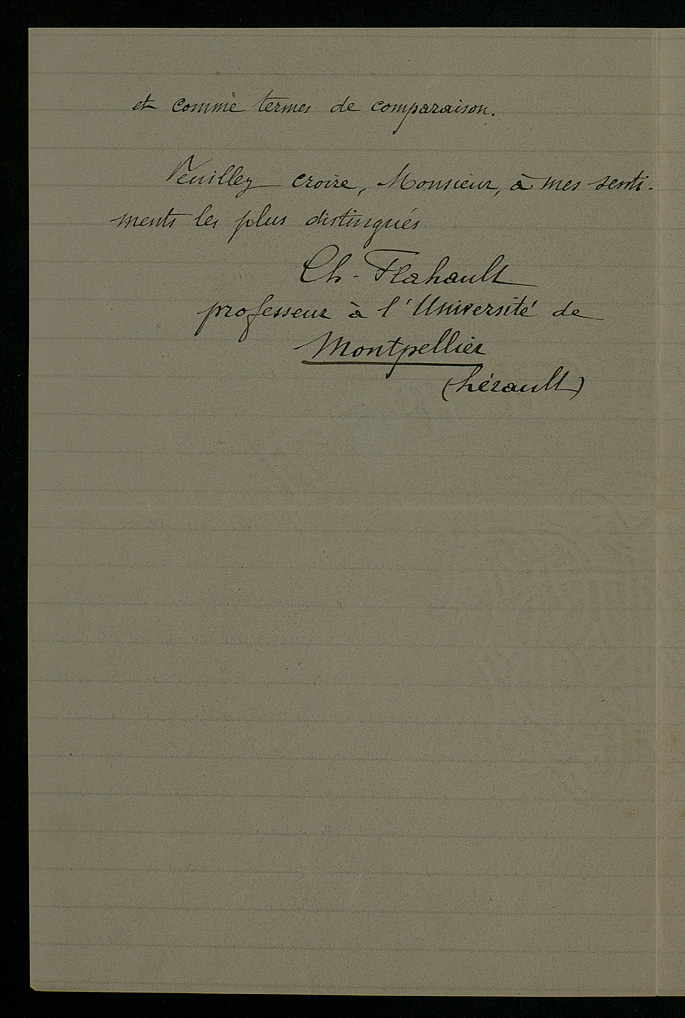 et comme termes de comparaison.
Veuillez croire, Monsieur, à mes senti-
ments les plus distingués
Ch. Flahault
professeur à l'Université de
Montpellier
(hérault)